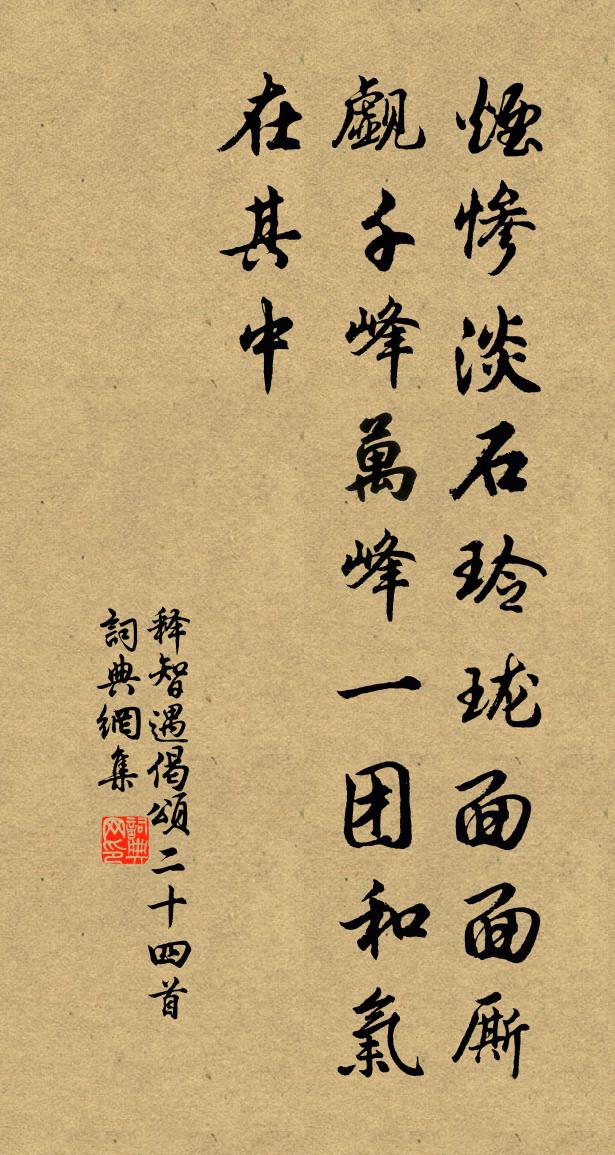 煙慘淡石玲珑面面厮
覷千峰萬峰一团和氣
在其中
释智遇偈頌二十四首
詞典網集
詞典
网印